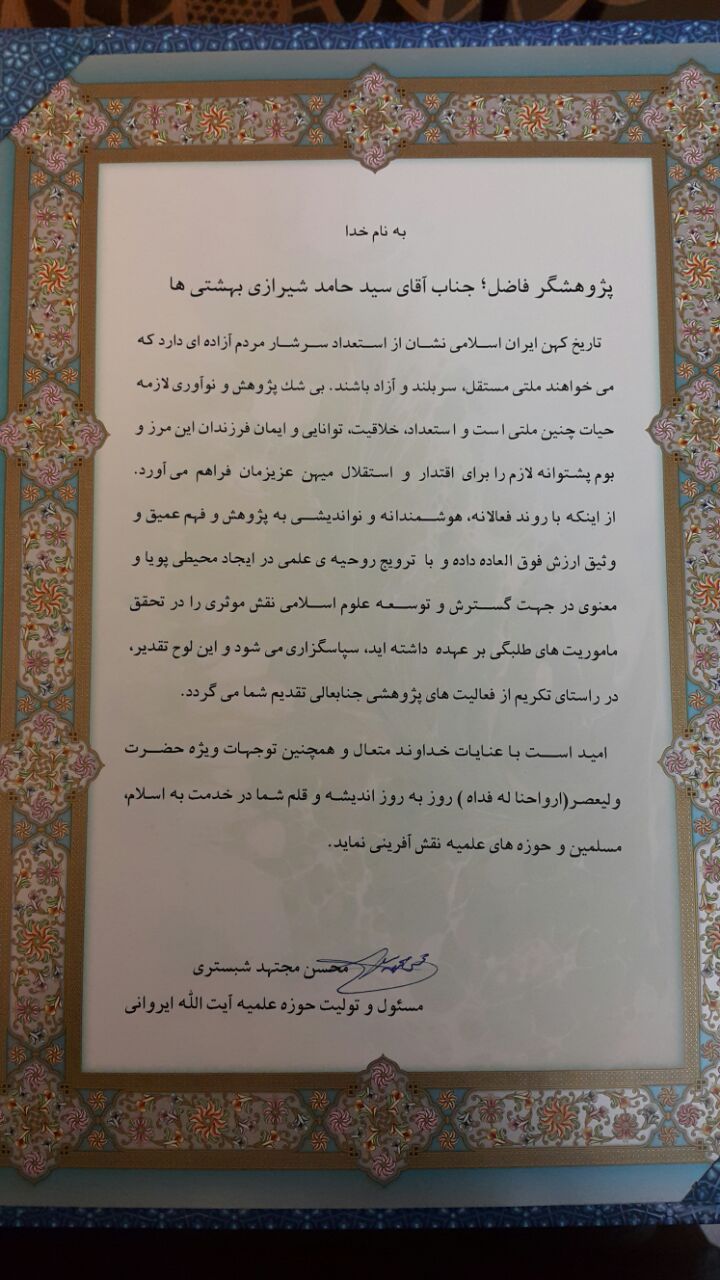 به نام خدا
پژوهشگر فاضل؛ جناب آقای سید حامد شیرازی بهشتی ها
تاریخ کهن ایران اسلامی نشان از استعداد سرشار مردم آزاده ای دارد که
می خواهند ملتی مستقل، سربلند و آزاد باشند. بی شك پژوهش و نوآوری لازمه
حیات چنین ملتی است و استعداد، خلاقیت، توانایی و ایمان فرزندان این مرز و
بوم پشتوانه لازم را برای اقتدار و استقلال میهن عزیزمان فراهم می آورد.
از اینکه با روند فعالانه، هوشمندانه و نواندیشی به پژوهش و فهم عمیق و
وثیق ارزش فوق العاده داده و با ترویج روحیه ی علمی در ایجاد محیطی پویا و
معنوی در جهت گسترش و توسعه علوم اسلامی نقش موثری را در تحقق
ماموریت های طلبگی بر عهده داشته اید، سپاسگزاری می شود و این لوح تقدیر،
در راستای تکریم از فعالیت های پژوهشی جنابعالی تقدیم شما می گردد.
امید است با عنایات خداوند متعال و همچنین توجهات ویژه حضرت
ولیعصر(ارواحنا له فداه ) روز به روز اندیشه و قلم شما در خدمت به اسلام،
مسلمین و حوزه های علمیه نقش آفرینی نماید.
محسن مجتهد شبستری
مسئول و تولیت حوزه علمیه آیت الله ایروانی